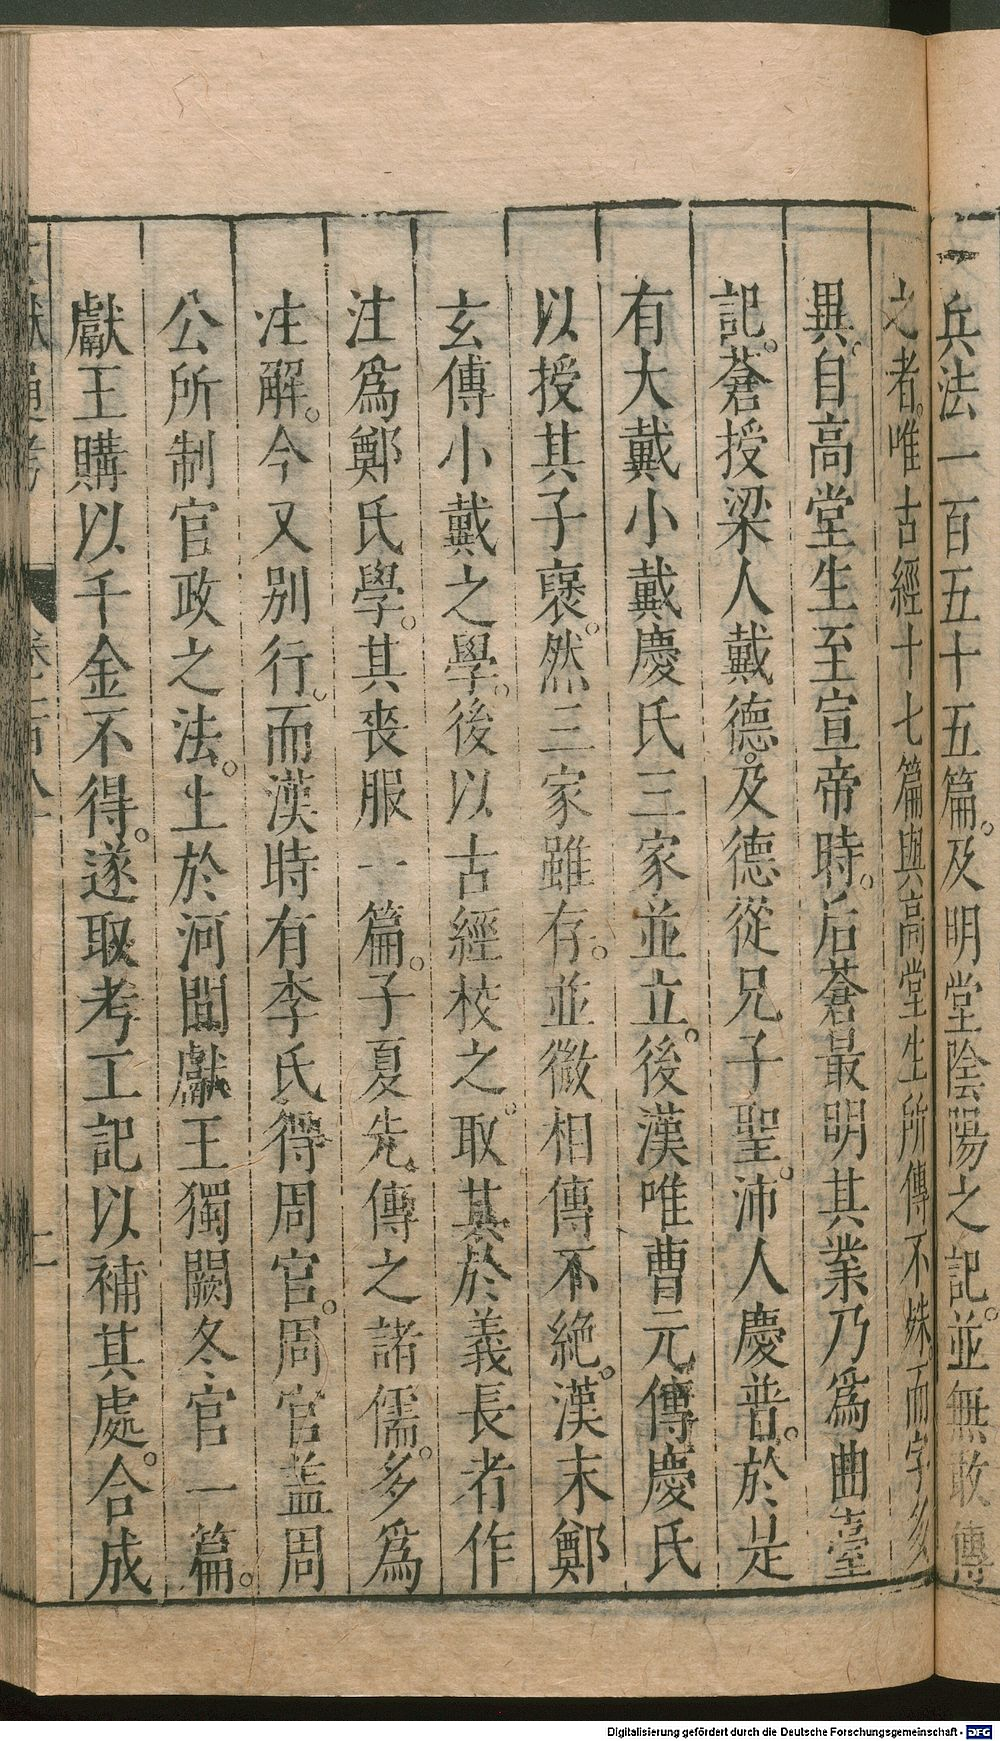 兵法一百五十五篇。及明堂陰陽之記。並無敢傳
之者。唯古經十七篇與高堂生所傳不殊。而字多
異。自高堂生至宣帝時。后蒼最明其業乃爲曲臺
記。蒼授梁人戴德。及德從兄子聖。沛人慶普。於是
有大戴小戴慶氏三家並立。後漢唯曹元傳慶氏
以授其子襃。然三家雖存。並微相傳不絶。漢末鄭
玄傳小戴之學。後以古經校之。取其於義長者作
注爲鄭氏學。其喪服一篇。子夏先傳之諸儒。多爲
注解。今又别行。而漢時有李氏得周官。周官盖周
公所制官政之法。上於河間獻王獨闕冬官一篇。
獻王購以千金不得。遂取考工記以補其處。合成
獻通考 卷一百八十 二
Digitalisierung gefördert durch die Deutsche Forschungsgemeinschaft - DFG